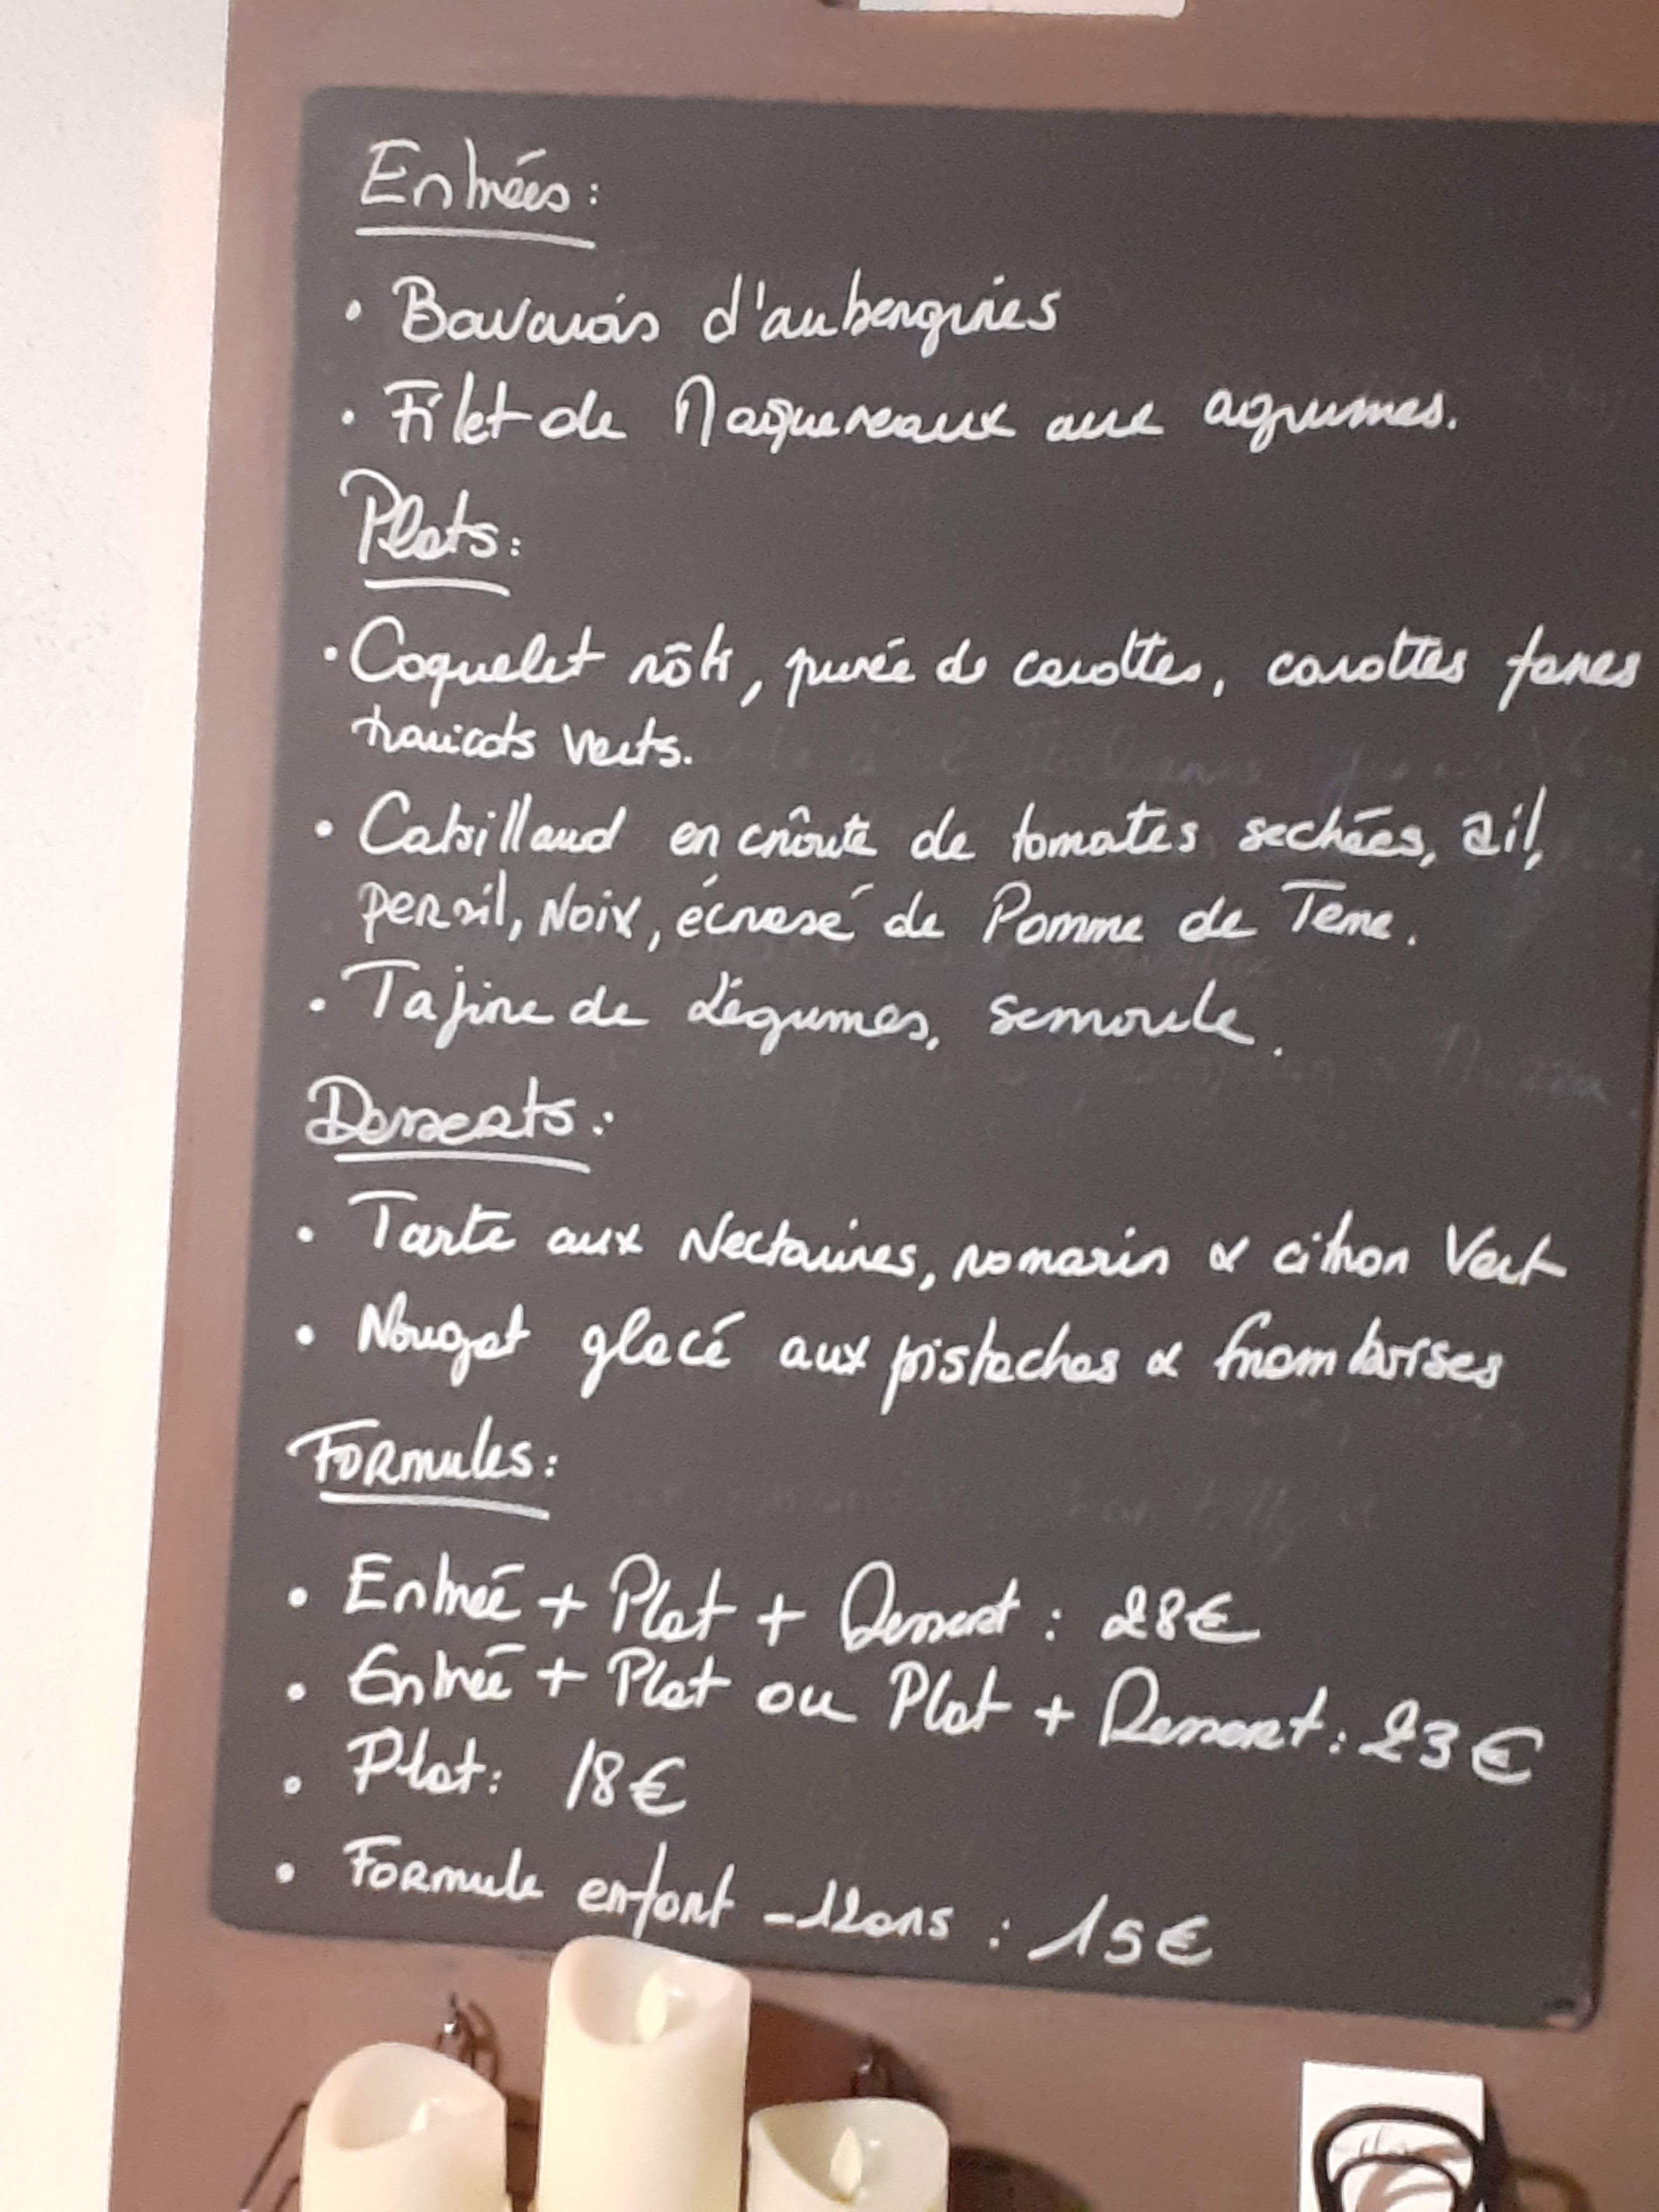 Entrées :
• Bavarois d'aubergines
• Filet de Maquereaux aux agrumes.
Plats :
• Coquelet rôti, purée de carottes, carottes fanes
haricots verts.
• Cabillaud en croûte de tomates sechées, ail,
persil, Noix, écrasé de Pomme de Terre.
• Tajine de Légumes, semoule.
Desserts :
• Tarte aux Nectarines, romarin & citron Vert
• Nougat glacé aux pistaches & framboises
Formules :
• Entrée + Plat + Dessert : 28€
• Entrée + Plat ou Plat + Dessert : 23€
• Plat : 18€
• Formule enfant -12ans : 15€